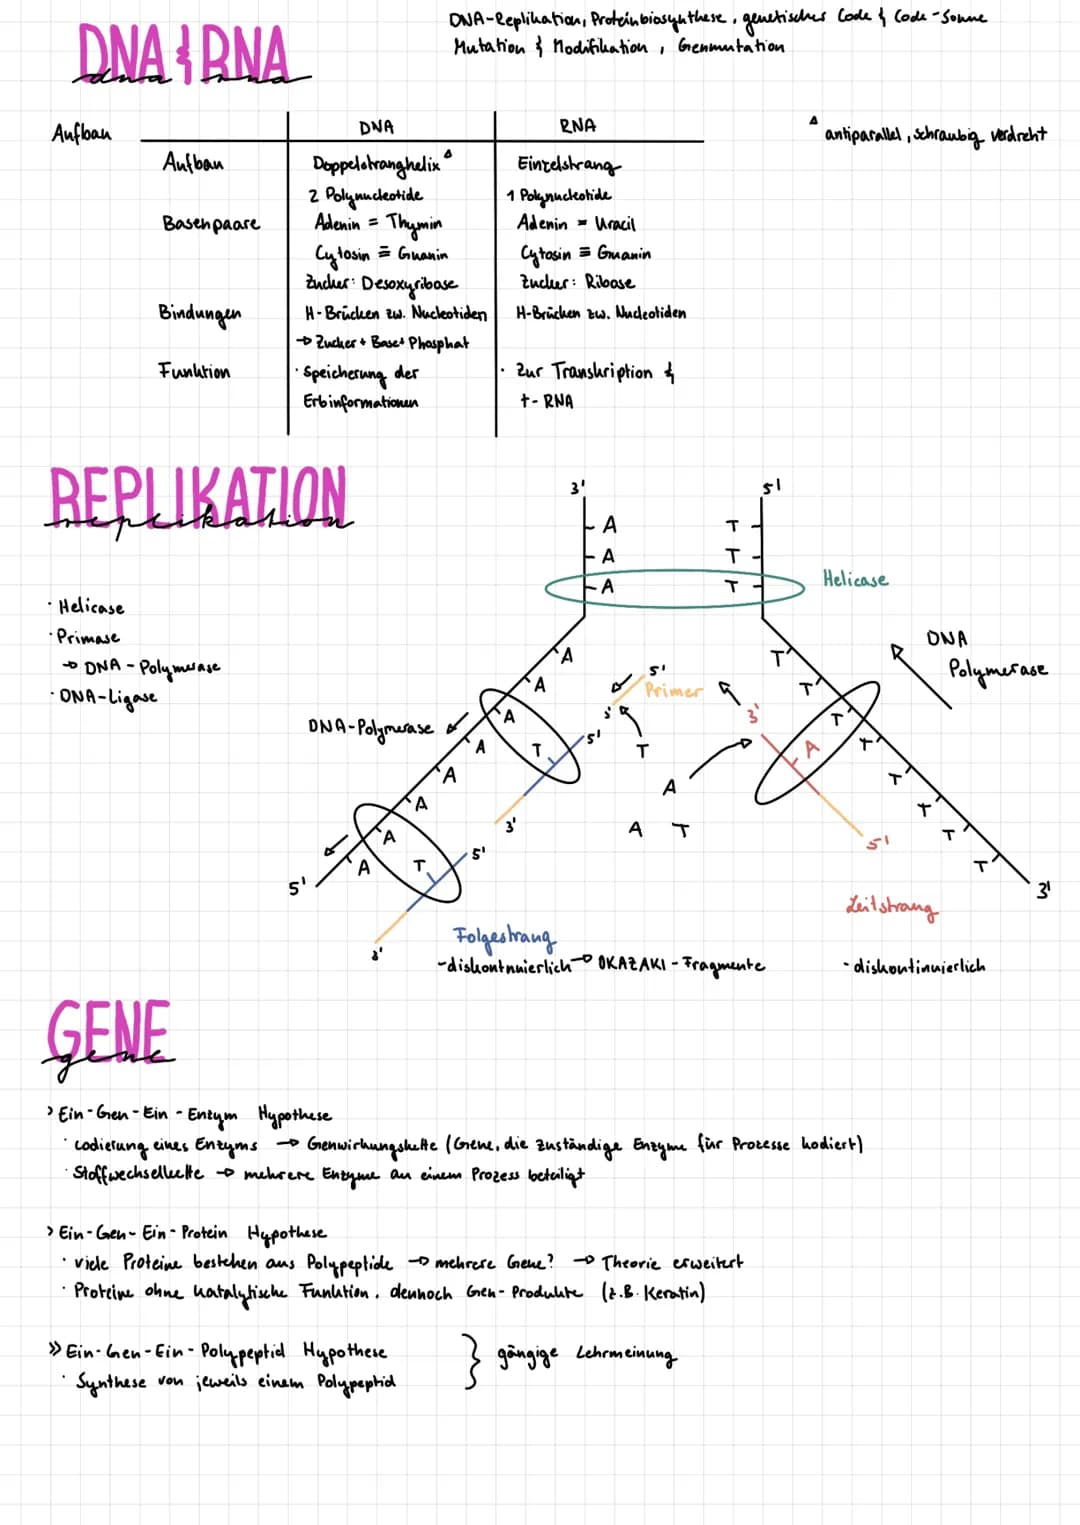 DNA & RNA
dna rna
DNA-Replikation, Proteinbiosynthese, genetisches Code & Code-Sonne
Mutation & Modifikation, Genmutation
Aufbau
DNA RNA
Δ antiparallel, schraubig verdreht
Aufbau Doppelstranghelix Δ Einzelstrang
2 Polynucleotide 1 Polynucleotide
Basenpaare Adenin = Thymin Adenin = Uracil
Cytosin ≡ Guanin Cytosin ≡ Guanin
Zucker: Desoxyribose Zucker: Ribose
Bindungen H-Brücken zw. Nucleotiden H-Brücken zw. Nucleotiden
→ Zucker + Base + Phosphat
Funktion · Speicherung der · Zur Transkription &
Erbinformationen t-RNA
REPLIKATION
replikation
3' 5'
A T
A T
A T Helicase
· Helicase
· Primase
→ DNA-Polymerase
· DNA-Ligase
DNA
Polymerase
A T
5'
Primer
A T
3' 3'
DNA-Polymerase
A T 5' T A T
A T T
A A T
A 3' A T T
A T 5' 5' T
A T
5' 3'
3'
Leitstrang
Folgestrang
-diskontnuierlich → OKAZAKI-Fragmente
- diskontinuierlich
GENE
gene
> Ein-Gen-Ein-Enzym Hypothese
· codierung eines Enzyms → Genwirkungskette (Gene, die zuständige Enzyme für Prozesse kodiert)
· Stoffwechselkette → mehrere Enzyme an einem Prozess beteiligt
> Ein-Gen-Ein-Protein Hypothese
· viele Proteine bestehen aus Polypeptide → mehrere Gene? → Theorie erweitert
· Proteine ohne katalytische Funktion, dennoch Gen-Produkte (z.B. Keratin)
>> Ein-Gen-Ein-Polypeptid Hypothese } gängige Lehrmeinung
· Synthese von jeweils einem Polypeptid